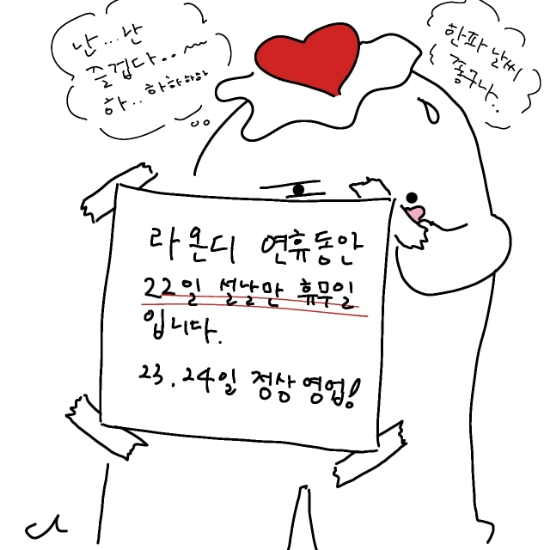 난...난
즐겁다..~
하..하하하하
한파 날씨
쫑구나..
라온디 연휴동안
22일 설날만 휴무일
입니다.
23.24일 정상영업!